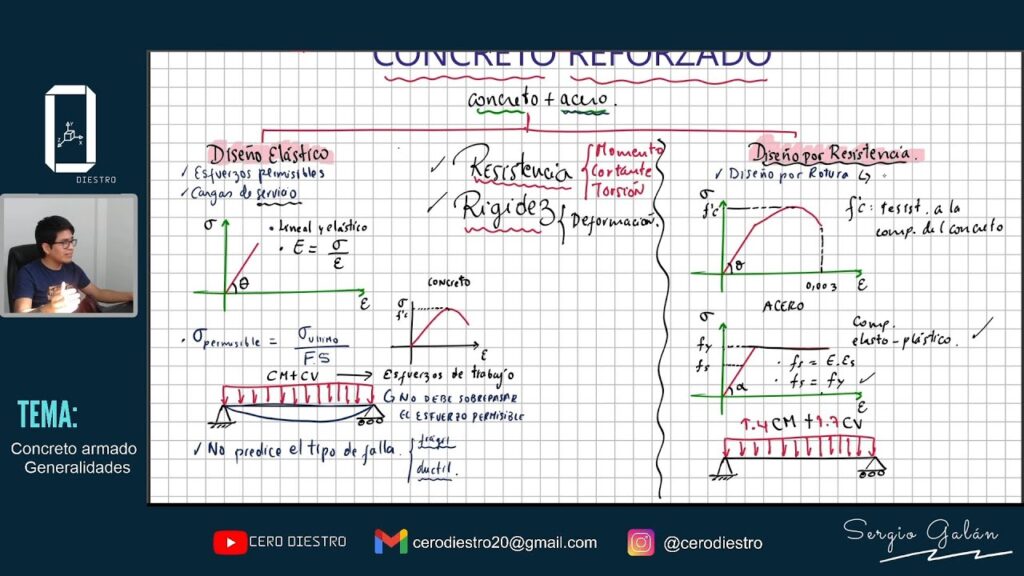 CONCRETO REFORZADO
concreto + acero.
Diseño Elástico
✓ Esfuerzos permisibles
✓ Cargas de servicio
σ
• Lineal y elástico
• E = σ/ε
θ
ε
• σpermisible = σultimo/FS
CM+CV → Esfuerzos de trabajo
NO DEBE SOBREPASAR
EL ESFUERZO PERMISIBLE
✓ No predice el tipo de falla.
frágil
ductil.
✓ Resistencia
Momento
Cortante
Torsión
✓ Rigidez
Deformación.
CONCRETO
σ
f'c
ε
Diseño por Resistencia.
✓ Diseño por Rotura
σ
f'c
f'c: resist. a la
comp. del concreto
θ
0,003
ε
ACERO
σ
fy
fs
Comp.
elasto-plástico.
• fs = E.Es
• fs = fy ✓
α
ε
1.4CM + 1.7CV
0
DIESTRO
TEMA:
Concreto armado
Generalidades
CERO DIESTRO
cerodiestro20@gmail.com
@cerodiestro
Sergio Galán